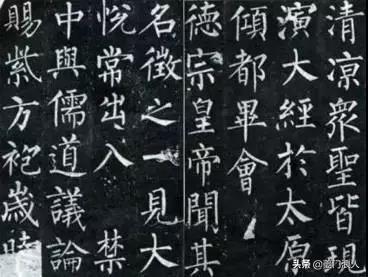 清凉衆聖皆現
演大經於太原
傾都畢會
德宗皇帝聞其
名徵之一見大
悅常出入 禁
中與儒道議論
賜紫方袍歲時
头条